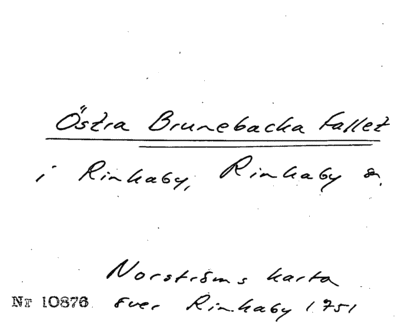 Östra Brunebacka fallet
i Rinkaby, Rinkaby sn.
Norströms karta
Nr 10876 över Rinkaby 1751